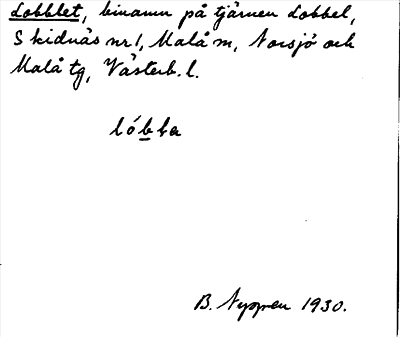 Lobblet, binamn på tjärnen Lobbel,
Skidnäs nr 1, Malå m, Norsjö och
Malå tg, Västerb. l.
lóbba
B. Nyppen 1930.